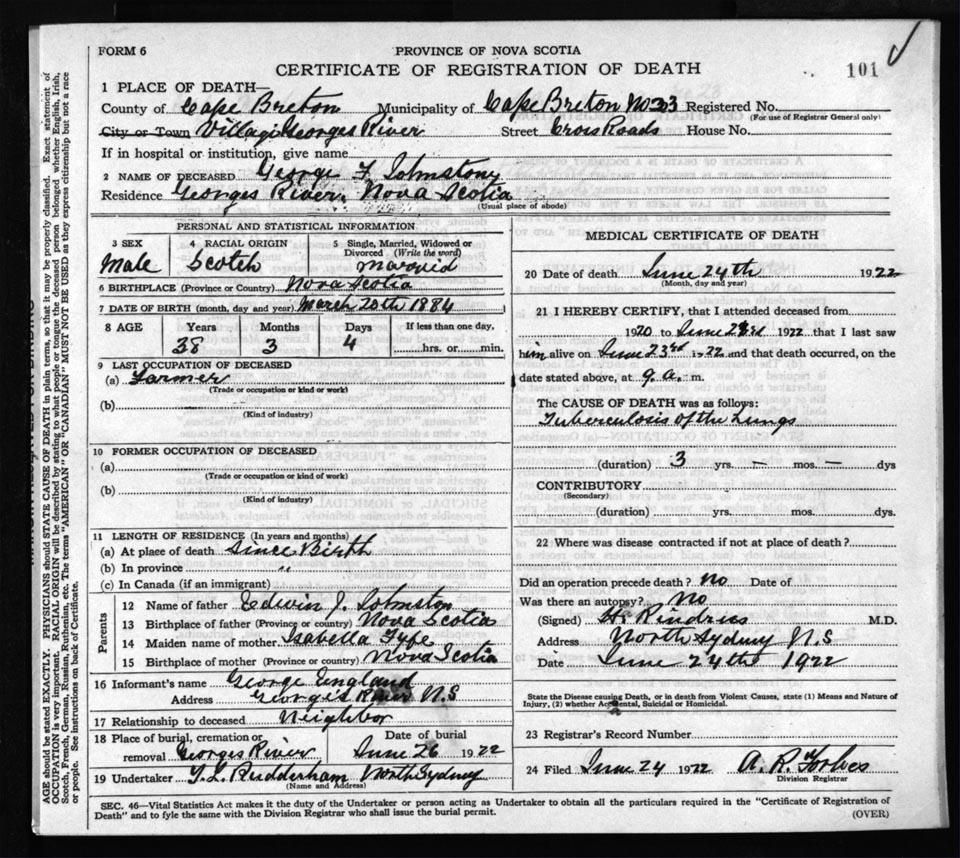 FORM 6
PROVINCE OF NOVA SCOTIA
CERTIFICATE OF REGISTRATION OF DEATH
101
1 PLACE OF DEATH—
County of Cape Breton Municipality of Cape Breton No 23 Registered No.
(For use of Registrar General only)
City or Town Village Georges River Street Cross Roads House No.
If in hospital or institution, give name
2 NAME OF DECEASED George F Johnston
Residence Georges River, Nova Scotia
(Usual place of abode)
PERSONAL AND STATISTICAL INFORMATION
3 SEX Male
4 RACIAL ORIGIN Scotch
5 Single, Married, Widowed or Divorced (Write the word) Marrid
6 BIRTHPLACE (Province or Country) Nova Scotia
7 DATE OF BIRTH (month, day and year) March 20th 1884
8 AGE Years Months Days If less than one day,
38 3 4 hrs. or min.
9 LAST OCCUPATION OF DECEASED
(a) Farmer
(Trade or occupation or kind or work)
(b)
(Kind of industry)
10 FORMER OCCUPATION OF DECEASED
(a)
(Trade or occupation or kind of work)
(b)
(Kind of industry)
11 LENGTH OF RESIDENCE (In years and months)
(a) At place of death Since Birth
(b) In province "
(c) In Canada (if an immigrant)
Parents
12 Name of father Edwin J. Johnston
13 Birthplace of father (Province or country) Nova Scotia
14 Maiden name of mother Isabella Fyfe
15 Birthplace of mother (Province or country) Nova Scotia
16 Informant's name George England
Address George's River N.S
17 Relationship to deceased Neighbor
18 Place of burial, cremation or removal Georges River Date of burial June 26 1922
19 Undertaker Rudderham North Sydney
(Name and Address)
MEDICAL CERTIFICATE OF DEATH
20 Date of death June 24th 1922
(Month, day and year)
21 I HEREBY CERTIFY, that I attended deceased from
1920 to June 23rd 1922 that I last saw
him alive on June 23rd 1922 and that death occurred, on the
date stated above, at 9 a. m.
The CAUSE OF DEATH was as follows:
Tuberculosis of the Lungs
(duration) 3 yrs. — mos. — dys
CONTRIBUTORY
(Secondary)
(duration) yrs. mos. dys
22 Where was disease contracted if not at place of death?
Did an operation precede death? no Date of
Was there an autopsy? no
(Signed) M.D.
Address North Sydney N.S
Date June 24th 1922
State the Disease causing Death, or in death from Violent Causes, state (1) Means and Nature of
Injury, (2) whether Accidental, Suicidal or Homicidal.
23 Registrar's Record Number
24 Filed June 24 1922 A. R. Forbes
Division Registrar
SEC. 46—Vital Statistics Act makes it the duty of the Undertaker or person acting as Undertaker to obtain all the particulars required in the "Certificate of Registration of
Death" and to fyle the same with the Division Registrar who shall issue the burial permit.
(OVER)
AGE should be stated EXACTLY. PHYSICIANS should STATE CAUSE OF DEATH in plain terms, so that it may be properly classified. Exact statement of
OCCUPATION is very important. RACIAL ORIGIN will be described by stating to what people or tongue the deceased person belonged whether English, Irish,
Scotch, French, German, Russian, Ruthenian, etc. The terms "AMERICAN" OR "CANADIAN" MUST NOT BE USED as they express citizenship but not a race
or people. See instructions on back of Certificate.